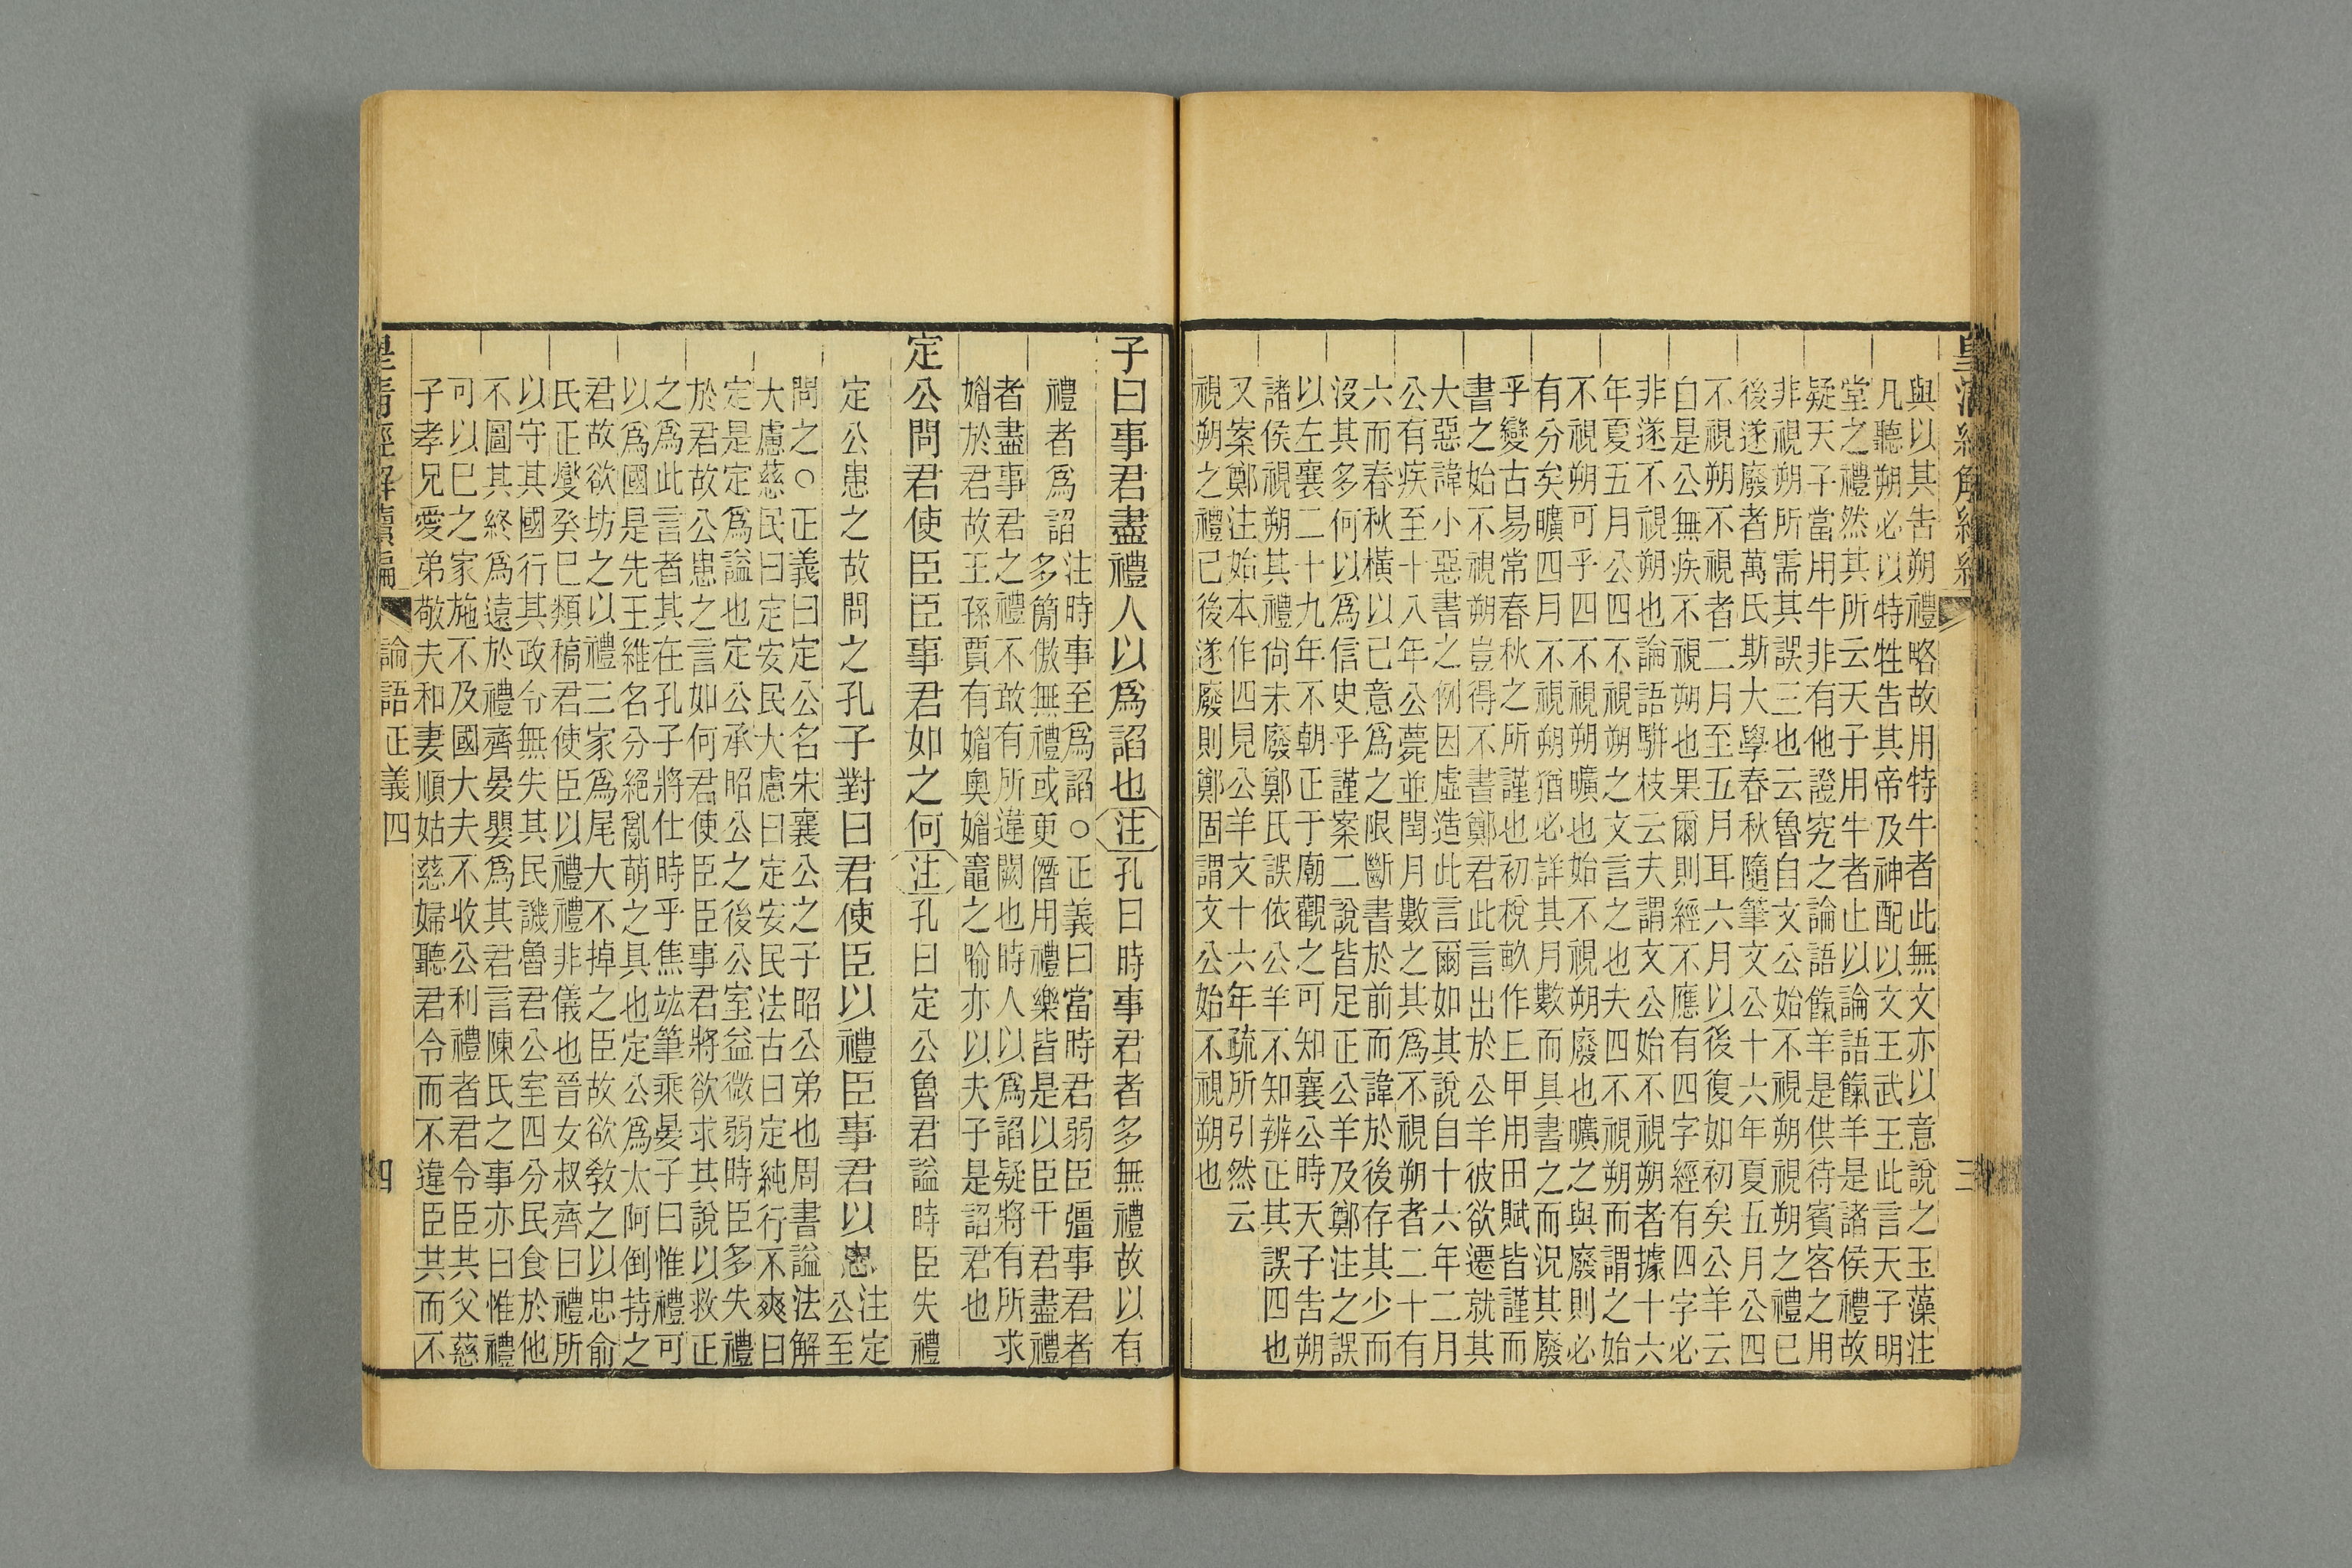 皇清經解續編 三
與以其告朔禮略故用特牛者此無文亦以意說之玉藻注
凡聽朔必以特牲告其帝及神配以文王武王此言天子明
堂之禮然其所云天子用牛者止以論語餼羊是諸侯禮故
疑天子當用牛非有他證究之論語餼羊是供待賓客之用
非視朔所需其誤三也云魯自文公始不視朔視朔之禮已
後遂廢者萬氏斯大學春秋隨筆文公十六年夏五月公四
不視朔不視者二月至五月耳六月以後復如初矣公羊云
自是公無疾不視朔也果爾則經不應有四字經有四字必
非遂不視朔也論語駢枝云夫謂文公始不視朔者據十六
年夏五月公四不視朔之文言之也夫四不視朔而謂之始
不視朔可乎四不視朔曠也始不視朔廢也曠之與廢則必
有分矣曠四月不視朔猶必詳其月數而具書之而況其廢
乎變古易常春秋之所謹也初稅畝作丘甲用田賦皆謹而
書之始不視朔豈得不書鄭君此言出於公羊彼欲遷就其
大惡諱小惡書之例因虛造此言爾如其說自十六年二月
公有疾至十八年公薨並閏月數之其爲不視朔者二十有
六而春秋橫以已意爲之限斷書於前而諱於後存其少而
沒其多何以爲信史乎謹案二說皆足正公羊及鄭注之誤
以左襄二十九年不朝正于廟觀之可知襄公時天子告朔
諸侯視朔其禮尙未廢鄭氏誤依公羊不知辨正其誤四也
又案鄭注始本作四見公羊文十六年疏所引然云
視朔之禮已後遂廢則鄭固謂文公始不視朔也
子曰事君盡禮人以爲諂也注孔曰時事君者多無禮故以有
禮者爲諂
注時事至爲諂○正義曰當時君弱臣彊事君者
多簡傲無禮或更僭用禮樂皆是以臣干君盡禮
者盡事君之禮不敢有所違闕也時人以爲諂疑將有所求
媚於君故王孫賈有媚奧媚竈之喻亦以夫子是諂君也
定公問君使臣臣事君如之何注孔曰定公魯君謚時臣失禮
定公患之故問之孔子對曰君使臣以禮臣事君以忠
注定
公至
問之○正義曰定公名宋襄公之子昭公弟也周書謚法解
大慮慈民曰定安民大慮曰定安民法古曰定純行不爽曰
定是定爲謚也定公承昭公之後公室益微弱時臣多失禮
於君故公患之言如何君使臣臣事君將欲求其說以救正
之爲此言者其在孔子將仕時乎焦竑筆乘晏子曰惟禮可
以爲國是先王維名分絕亂萌之具也定公爲太阿倒持之
君故欲坊之以禮三家爲尾大不掉之臣故欲敎之以忠俞
氏正燮癸巳類稿君使臣以禮禮非儀也晉女叔齊曰禮所
以守其國行其政令無失其民譏魯君公室四分民食於他
不圖其終爲遠於禮齊晏嬰爲其君言陳氏之事亦曰惟禮
可以已之家施不及國大夫不收公利禮者君令臣共父慈
子孝兄愛弟敬夫和妻順姑慈婦聽君令而不違臣共而不
皇清經解續編 論語正義四 四